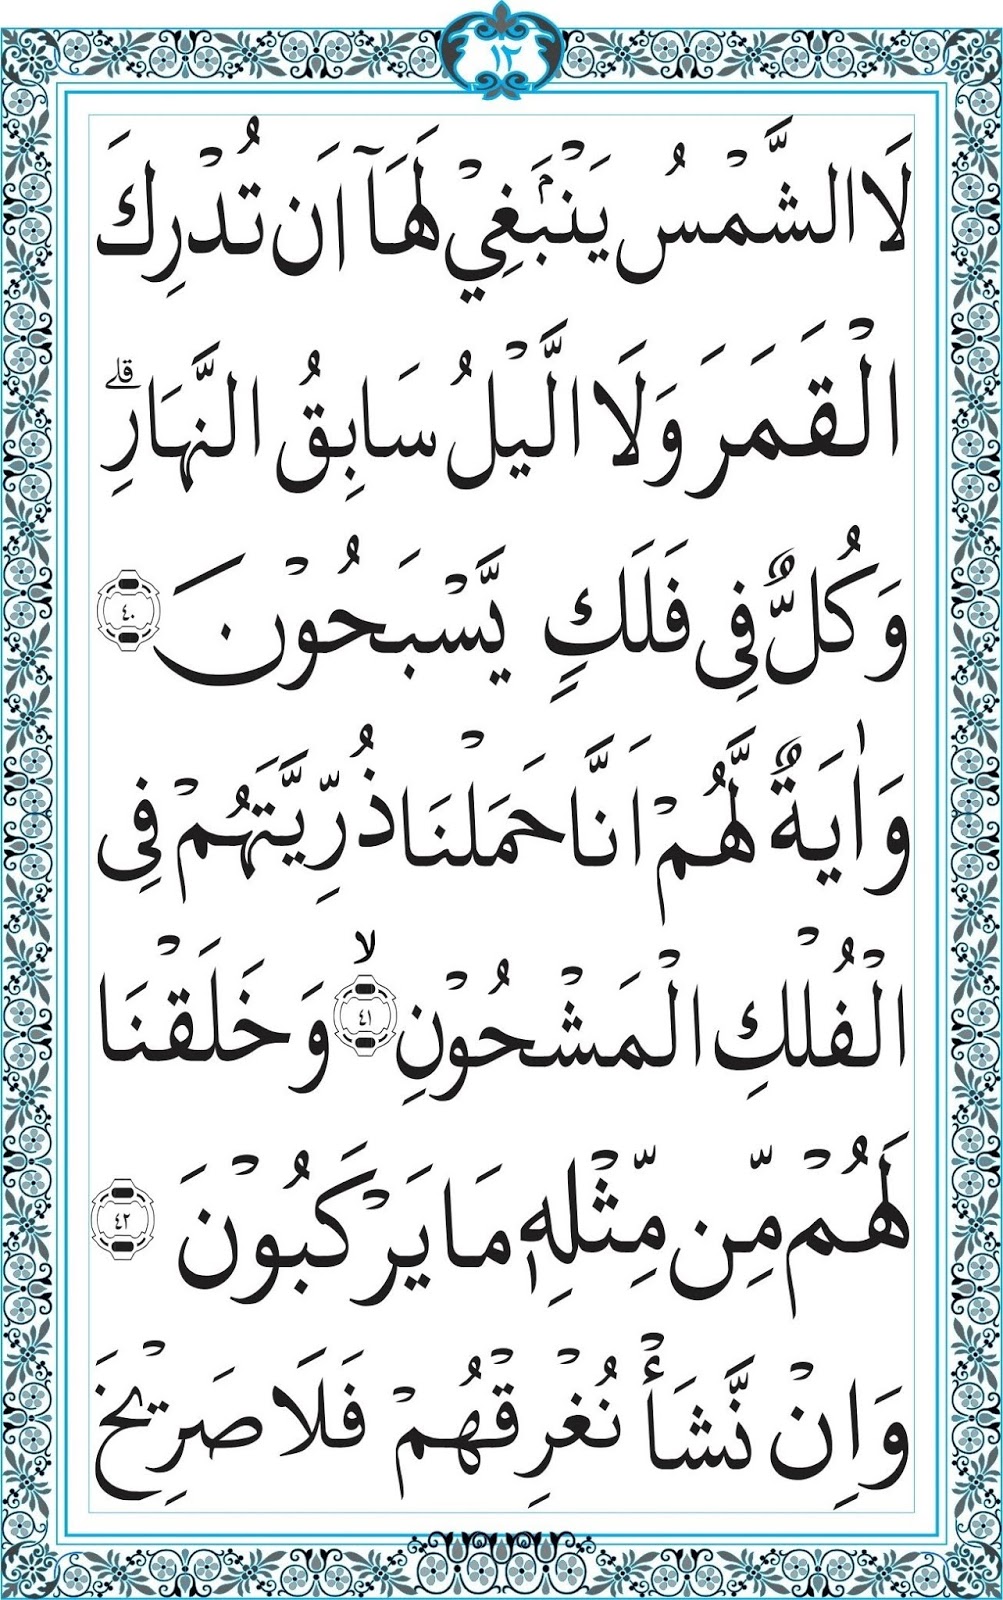 ١٢
لَا الشَّمْسُ يَنْۢبَغِيْ لَهَآ اَنْ تُدْرِكَ
الْقَمَرَ وَلَا الَّيْلُ سَابِقُ النَّهَارِ ۗ
وَكُلٌّ فِى فَلَكٍ يَّسْبَحُوْنَ ٤٠
وَاٰيَةٌ لَّهُمْ اَنَّا حَمَلْنَا ذُرِّيَّتَهُمْ فِى
الْفُلْكِ الْمَشْحُوْنِ ۙ ٤١ وَخَلَقْنَا
لَهُمْ مِّن مِّثْلِهٖ مَا يَرْكَبُوْنَ ٤٢
وَاِنْ نَّشَأْ نُغْرِقْهُمْ فَلَا صَرِيْخَ